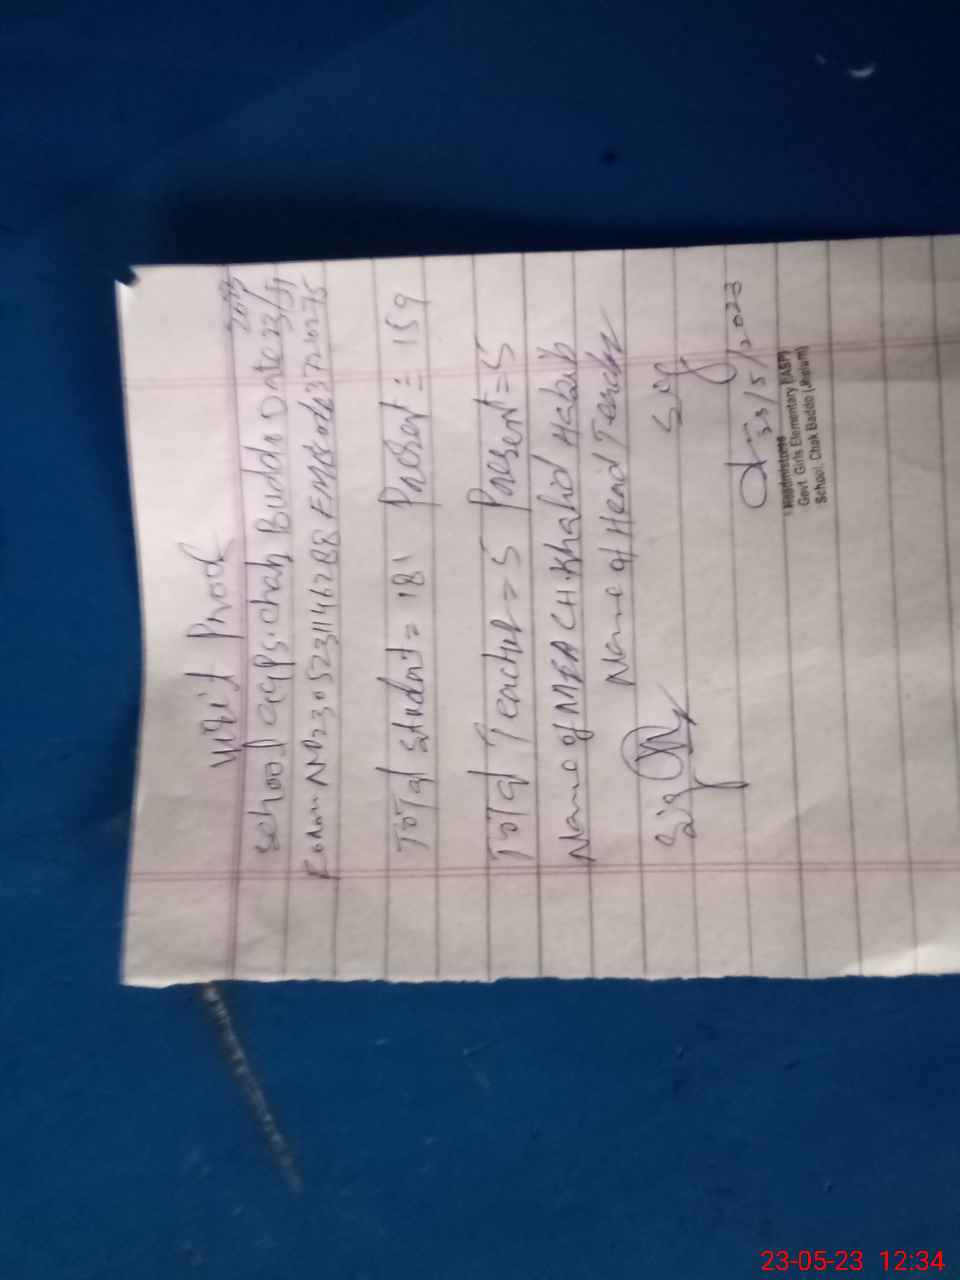 Visit Proof
School GGPS. Chak Buddo Date 23/5/
2023
EMIS Code 37210275
Total Student = 181 Present = 159
Total Teacher = 5 Present = 5
Name of MEA CH. Khalid Habib
Name of Head Teacher
Sig
Sig
23/5/2023
Headmistress
Govt. Girls Elementary (IASP)
School, Chak Baddo (Jhelum)
23-05-23 12:34